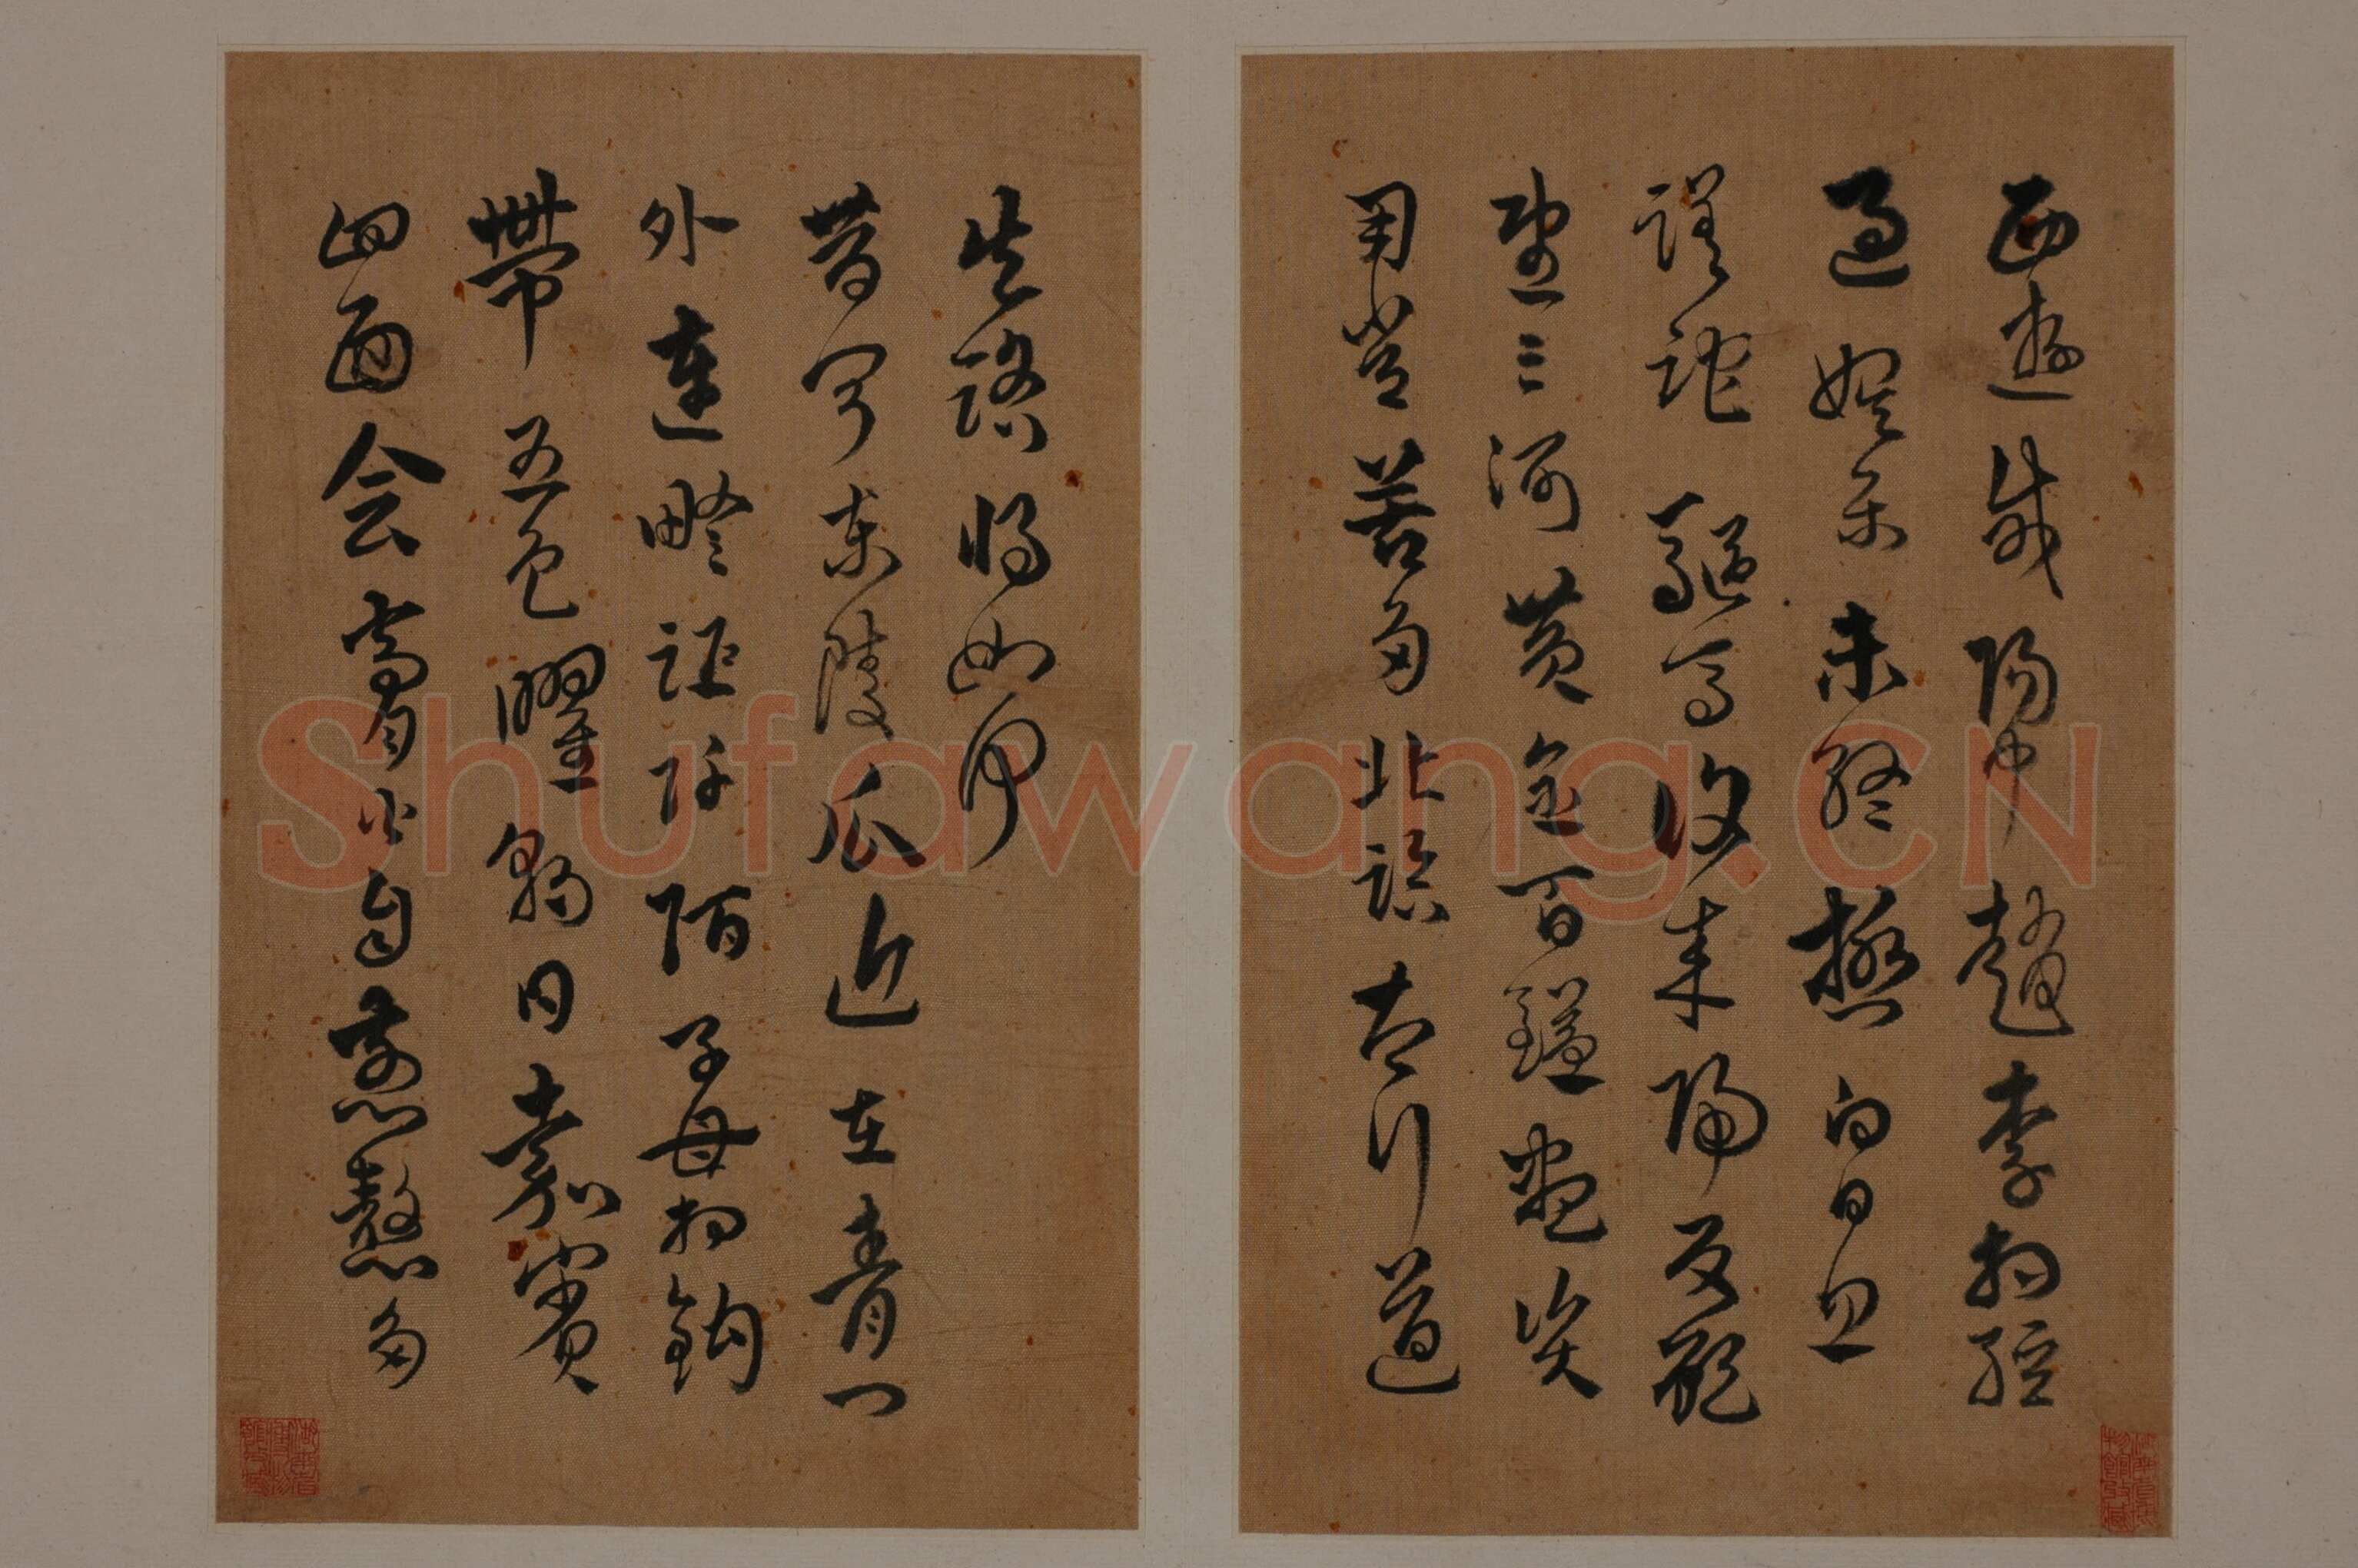 西遊咸陽中趙李相經
過娛樂未終極白日忽
蹉跎驅馬復來歸反顧
望三河黃金百鎰盡資
用常苦多北臨太行道
失路將如何
昔聞東陵瓜近在青門
外連畛距阡陌子母相鉤
帶五色曜朝日嘉賓
四面会膏火自煎熬多
Shufawang.CN